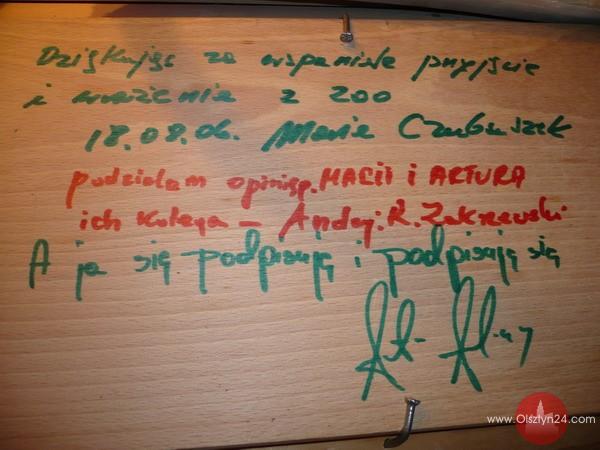 Dziękując za wspaniałe przyjście
i wrażenia z ZOO
18.08.06. Maria Czubaszek
podzielam opinię p. MARII i ARTURA
ich kolega - Andrzej. R. Zakrzewski
A ja się podpisuję i podpisuję się
www.Olsztyn24.com